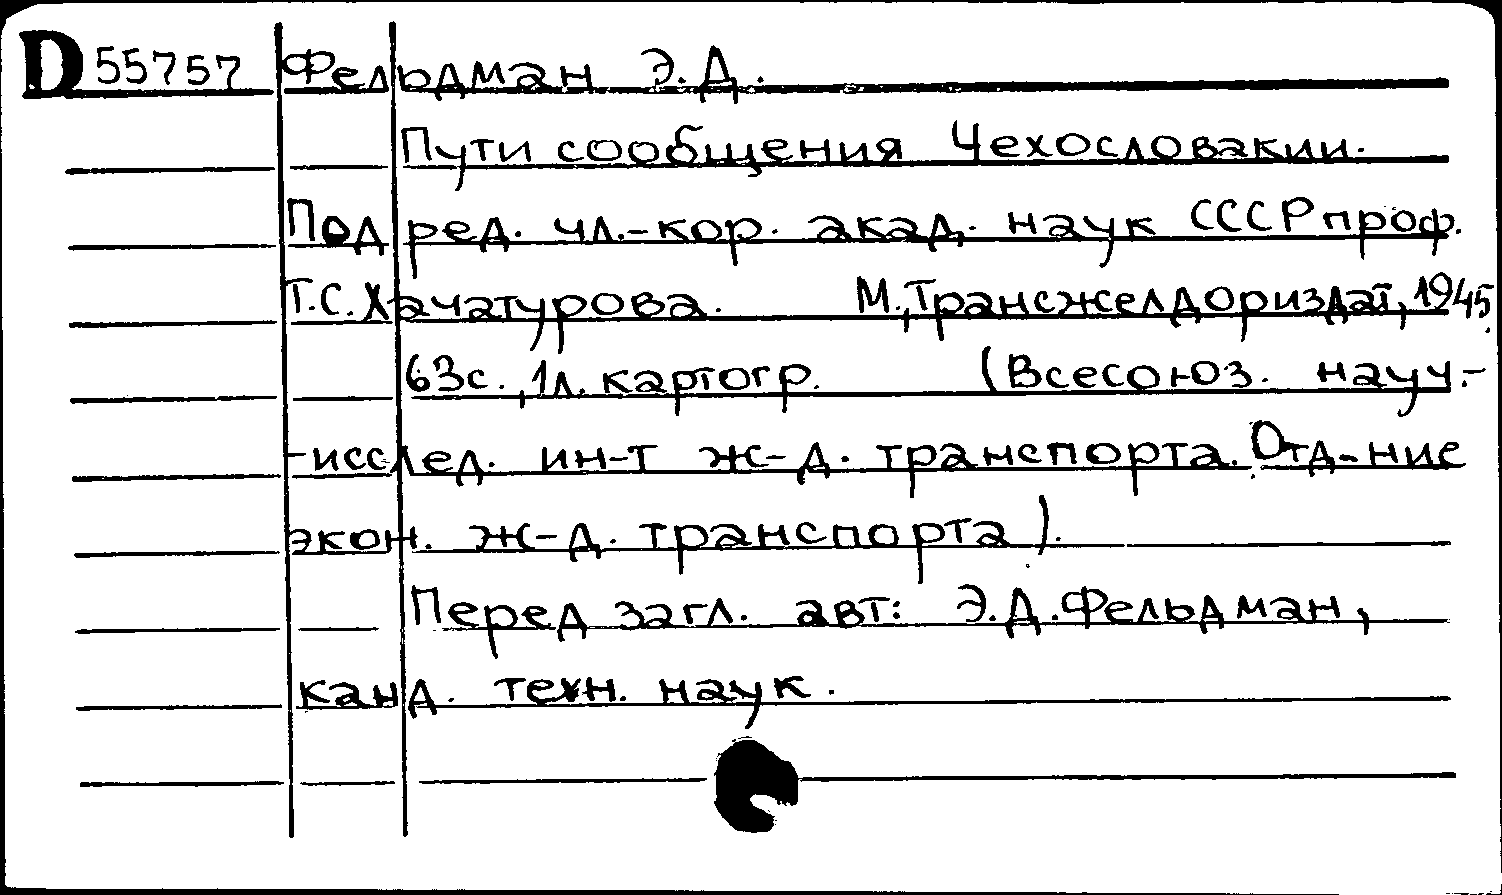 D 55757 Фельдман Э.Д.
Пути сообщения Чехословакии.
Под ред. чл.-кор. акад. наук СССР проф.
Т.С. Хачатурова. М., Трансжелдориздат, 1945.
63с., 1л. картогр. (Всесоюз. науч.-
-исслед. ин-т ж-д. транспорта. Отд-ние
экон. ж-д. транспорта).
Перед загл. авт: Э.Д. Фельдман,
канд. техн. наук.